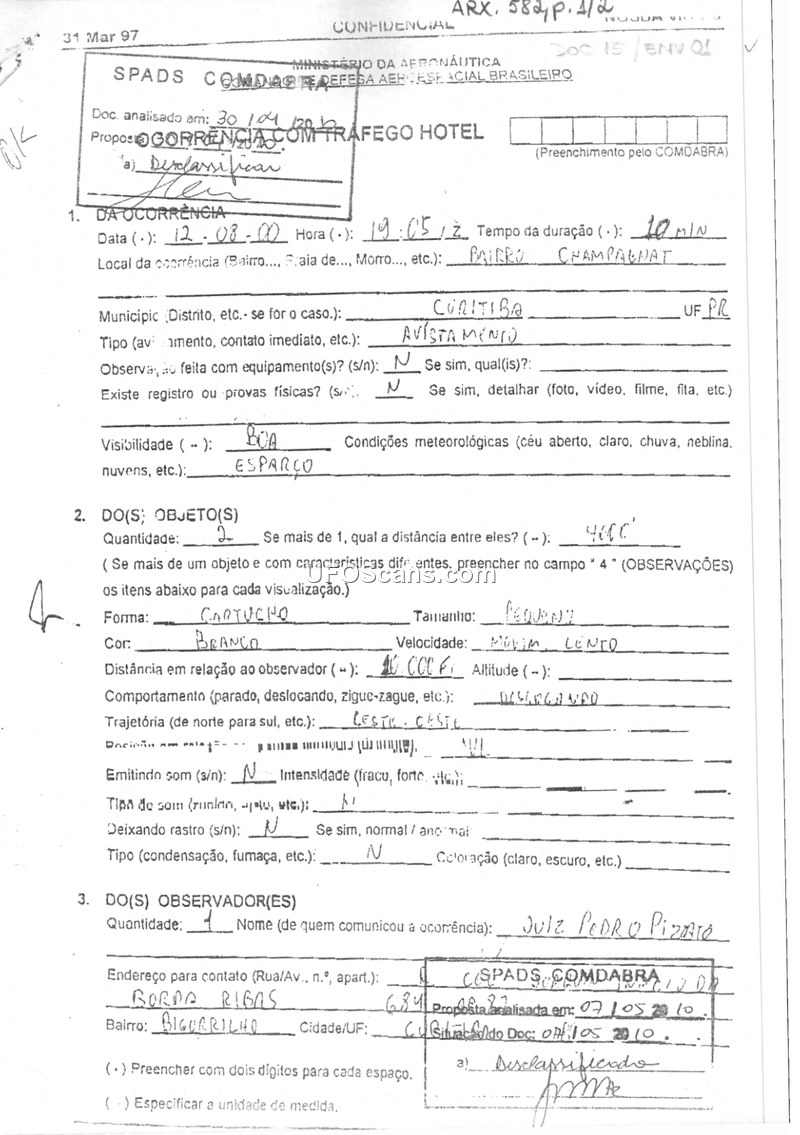 ARX. 582, p. 1/2
CONFIDENCIAL
31 Mar 97
DOC 15 / ENV 01
MINISTÉRIO DA AERONÁUTICA
COMANDO DE DEFESA AEROESPACIAL BRASILEIRO
SPADS COMDABRA
Doc. analisado em: 30 / 04 / 2010
Proposta
a) Desclassificar
OCORRÊNCIA COM TRÁFEGO HOTEL
(Preenchimento pelo COMDABRA)
1. DA OCORRÊNCIA
Data ( · ): 12 - 08 - 00 Hora ( · ): 19 : 05 / Z Tempo da duração ( · ): 10 MIN
Local da ocorrência (Bairro..., Praia de..., Morro..., etc.): BAIRRO CHAMPAGNAT
Município (Distrito, etc.- se for o caso.): CURITIBA UF PR
Tipo (avistamento, contato imediato, etc.): AVISTAMENTO
Observação feita com equipamento(s)? (s/n): N Se sim, qual(is)?:
Existe registro ou provas físicas? (s/n). N Se sim, detalhar (foto, vídeo, filme, fita, etc.)
Visibilidade ( -- ): BOA Condições meteorológicas (céu aberto, claro, chuva, neblina,
nuvens, etc.): ESPARÇO
2. DO(S) OBJETO(S)
Quantidade: 2 Se mais de 1, qual a distância entre eles? ( -- ):
( Se mais de um objeto e com características diferentes, preencher no campo " 4 " (OBSERVAÇÕES)
os itens abaixo para cada visualização.)
UFOScans.com
Forma: CARTUCHO Tamanho: PEQUENO
Cor: BRANCO Velocidade: MOVIM. LENTO
Distância em relação ao observador ( -- ): 10.000 Ft Altitude ( -- ):
Comportamento (parado, deslocando, zigue-zague, etc.): DESLOCANDO
Trajetória (de norte para sul, etc.): LESTE - OESTE
Emitindo som (s/n): N Intensidade (fraco, forte, etc.):
Tipo de som (zunido, apito, etc.): N
Deixando rastro (s/n): N Se sim, normal / anormal
Tipo (condensação, fumaça, etc.): N Coloração (claro, escuro, etc.)
3. DO(S) OBSERVADOR(ES)
Quantidade: 1 Nome (de quem comunicou a ocorrência): JUIZ PEDRO PIZATO
Endereço para contato (Rua/Av., n.º, apart.):
BORBA RIBAS 684
Bairro: BIGORRILHO Cidade/UF: CURITIBA
SPADS COMDABRA
Proposta analisada em: 07 / 05 2010
Situação do Doc: 07 / 05 2010.
a) Desclassificado
( · ) Preencher com dois dígitos para cada espaço.
( -- ) Especificar a unidade de medida.